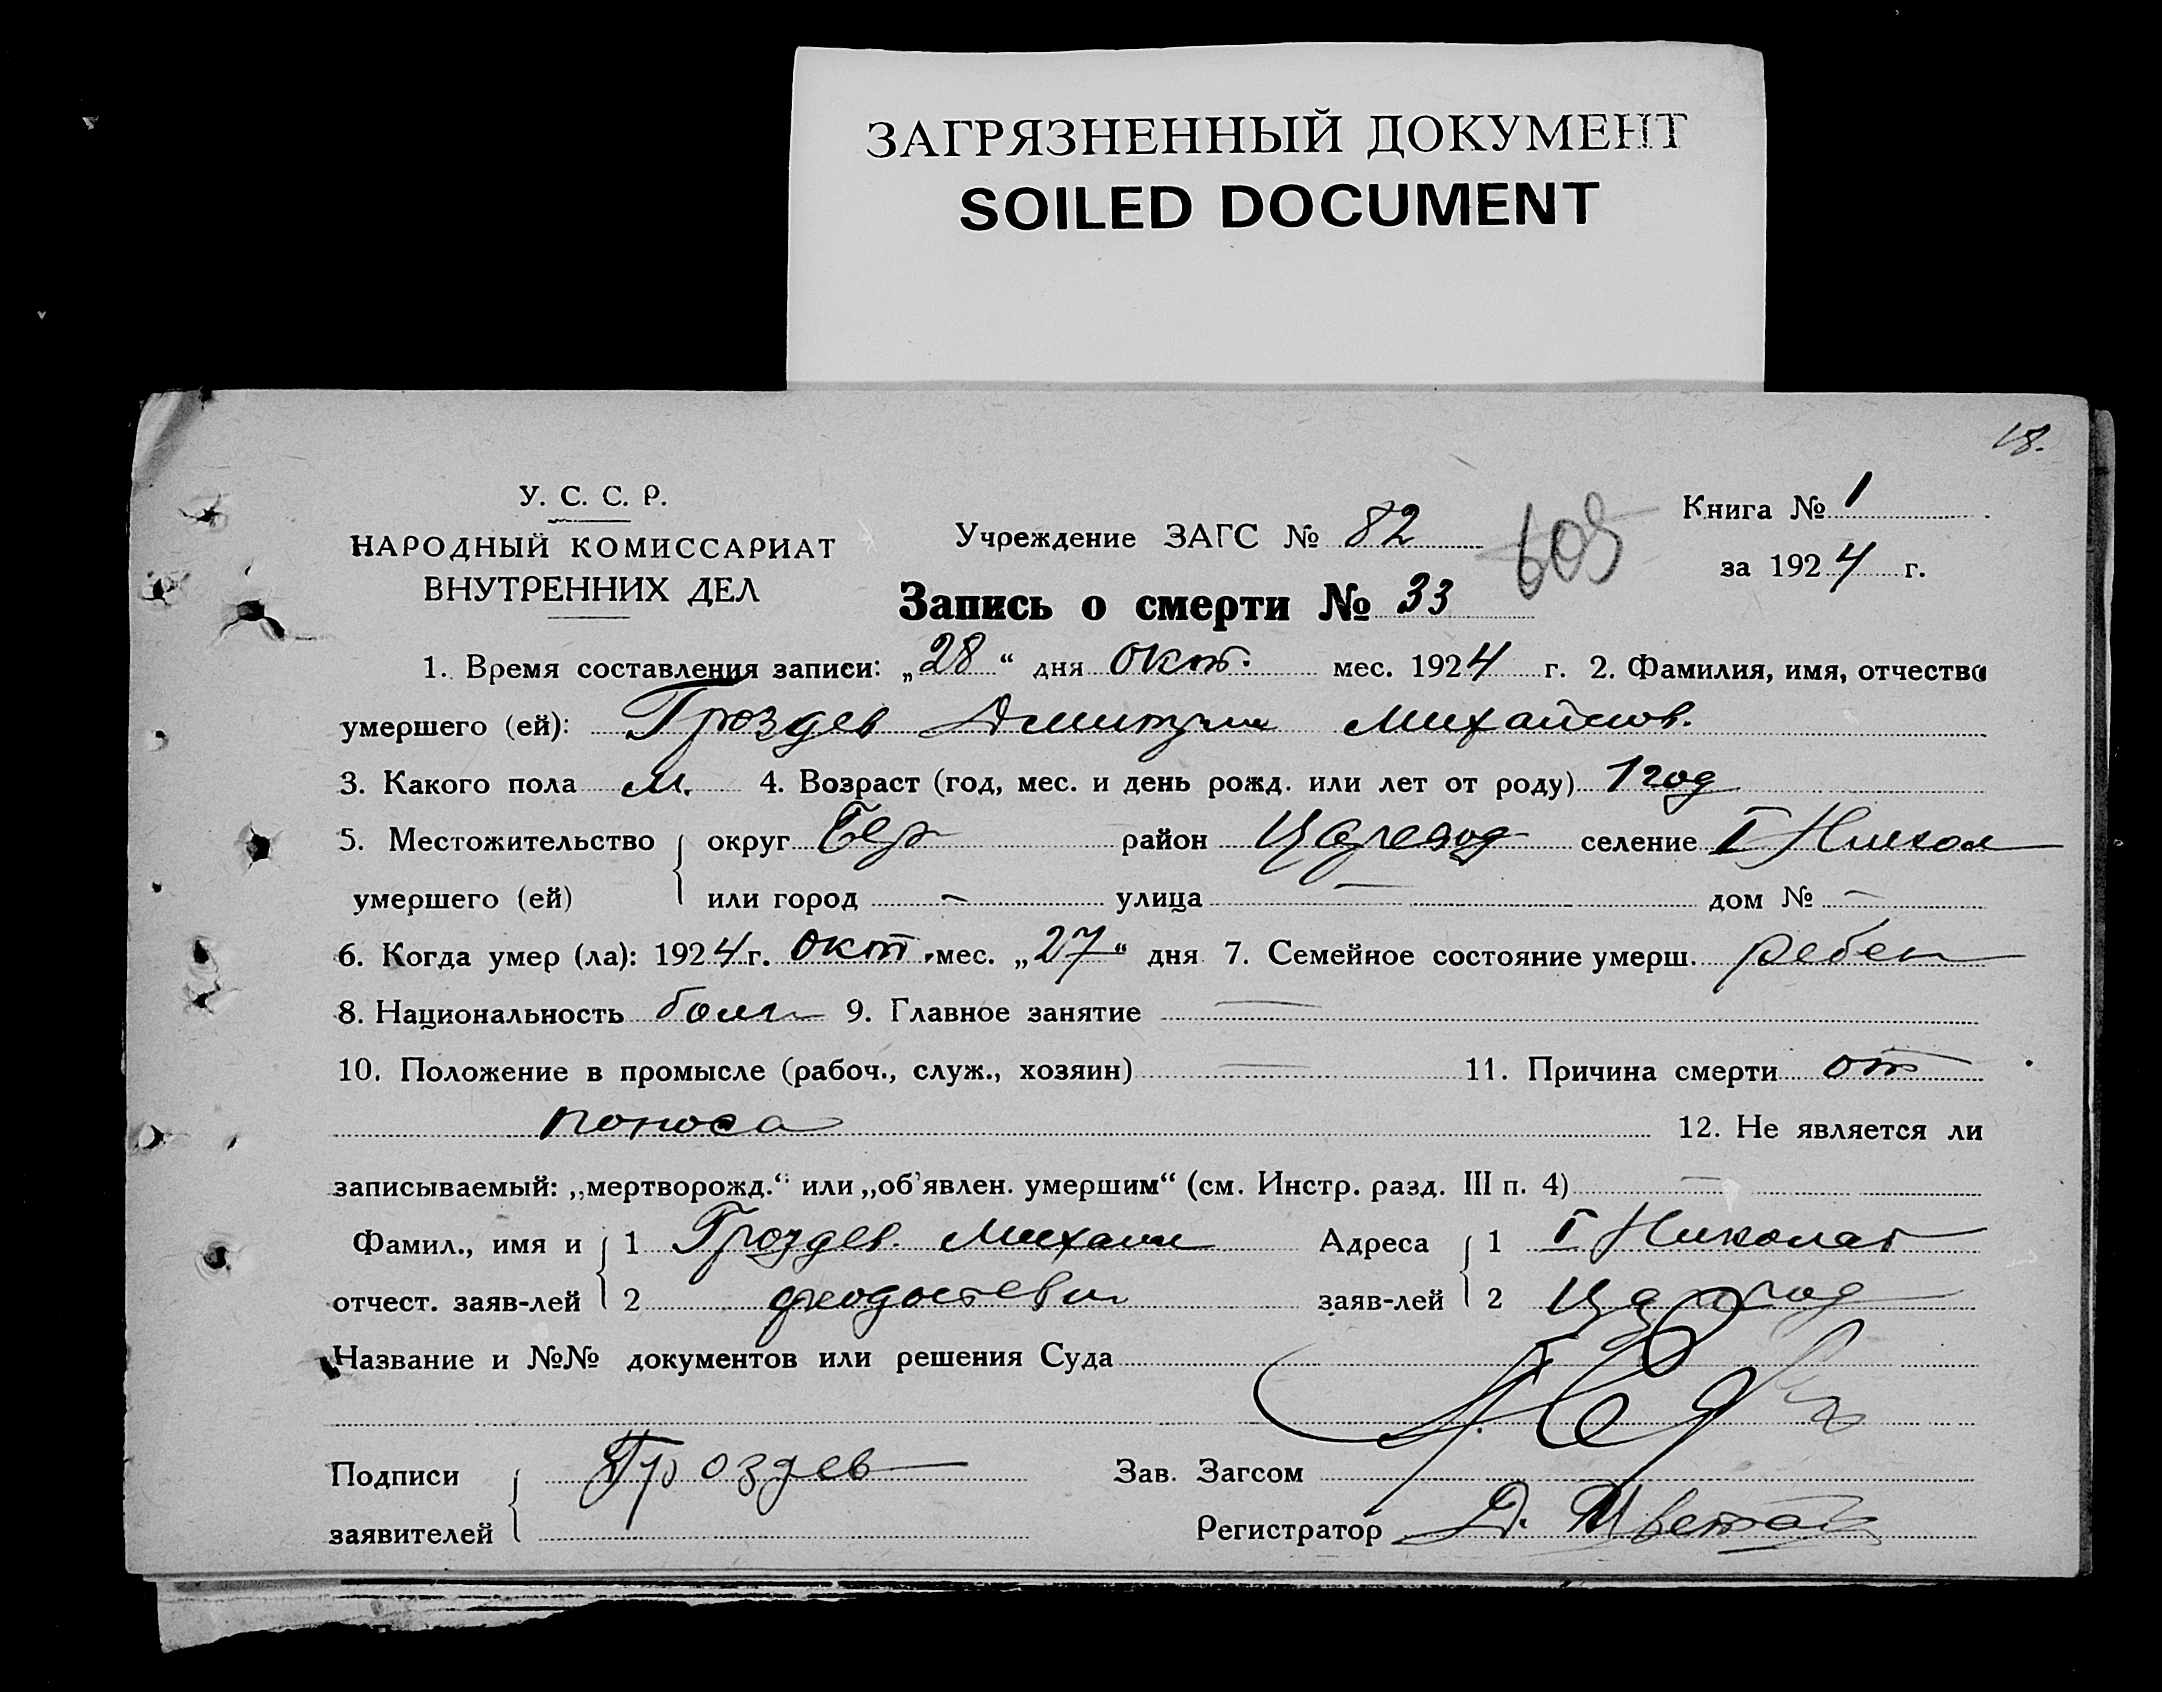 ЗАГРЯЗНЕННЫЙ ДОКУМЕНТ
SOILED DOCUMENT
18.
У. С. С. Р.
НАРОДНЫЙ КОМИССАРИАТ
ВНУТРЕННИХ ДЕЛ
Учреждение ЗАГС № 82
605
Книга № 1
за 1924 г.
Запись о смерти № 33
1. Время составления записи: „28“ дня окт. мес. 1924 г. 2. Фамилия, имя, отчество
умершего (ей): Гроздев Дмитри Михайлов.
3. Какого пола м. 4. Возраст (год, мес. и день рожд. или лет от роду) 1 год
5. Местожительство округ Бер район Царевод селение I Никол
умершего (ей) или город — улица — дом № —
6. Когда умер (ла): 1924 г. окт. мес. „27“ дня 7. Семейное состояние умерш. ребен
8. Национальность болг 9. Главное занятие —
10. Положение в промысле (рабоч., служ., хозяин) — 11. Причина смерти от
поноса 12. Не является ли
записываемый: „мертворожд.“ или „об'явлен. умершим“ (см. Инстр. разд. III п. 4) —
Фамил., имя и 1 Гроздев. Михаил Адреса 1 I Николаев
отчест. заяв-лей 2 феодосеев заяв-лей 2
Название и №№ документов или решения Суда
Подписи Гроздев Зав. Загсом
заявителей Регистратор Д.